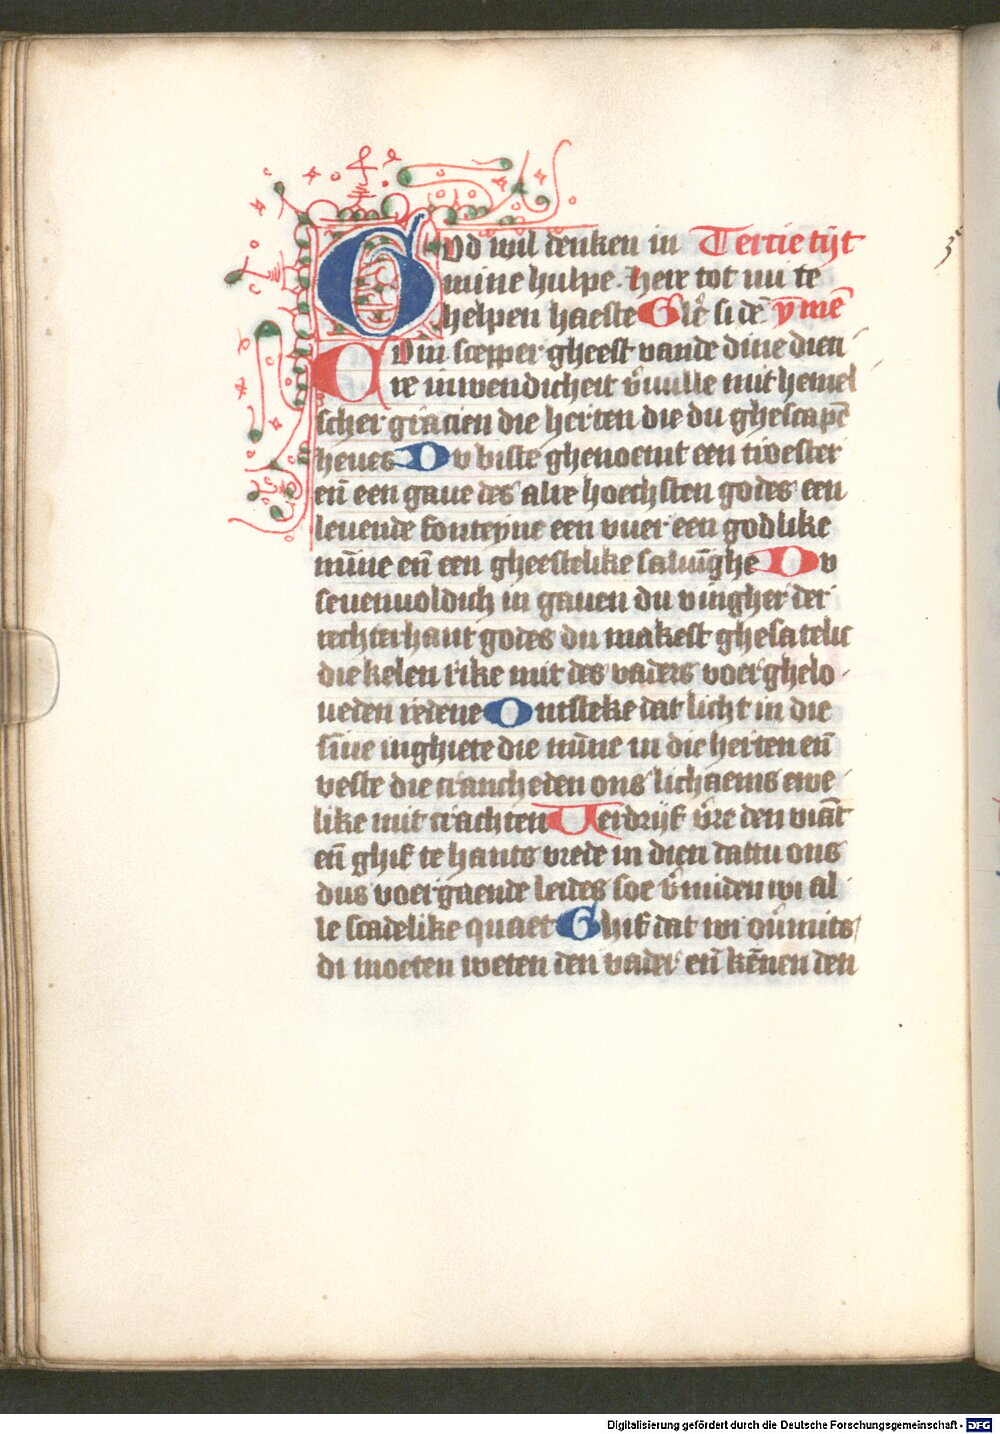 God wil denken in Tercie tijt
mine hulpe. Here tot mi te
helpen haeste Glē si dē ȳmē
Com scepper gheest vande dine dien
re inwendicheit v̄vulle mit hemel
scher gracien die herten die du ghescapē
heues Du biste ghenoemt een troester
eñ een gaue des alre hoechsten godes een
leuende fonteyne een vuer een godlike
mīne eñ een gheestelike saluīghe Du
seuenuoldich in gauen du vingher der
rechterhant godes du makest ghesatelic
die kelen rike mit des vaders voerghelo
ueden redene Ontsteke dat licht in die
sīne inghiete die mīne in die herten eñ
veste die crancheden ons lichaems ewe
like mit crachten Uerdrijf v̄re den viāt
eñ ghif te hants vrede in dien dattu ons
dus voergaende leides soe v̄miden wi al
le scadelike quaet Ghif dat wi ou̇mits
di moeten weten den vader eñ kēnen den
Digitalisierung gefördert durch die Deutsche Forschungsgemeinschaft - DFG